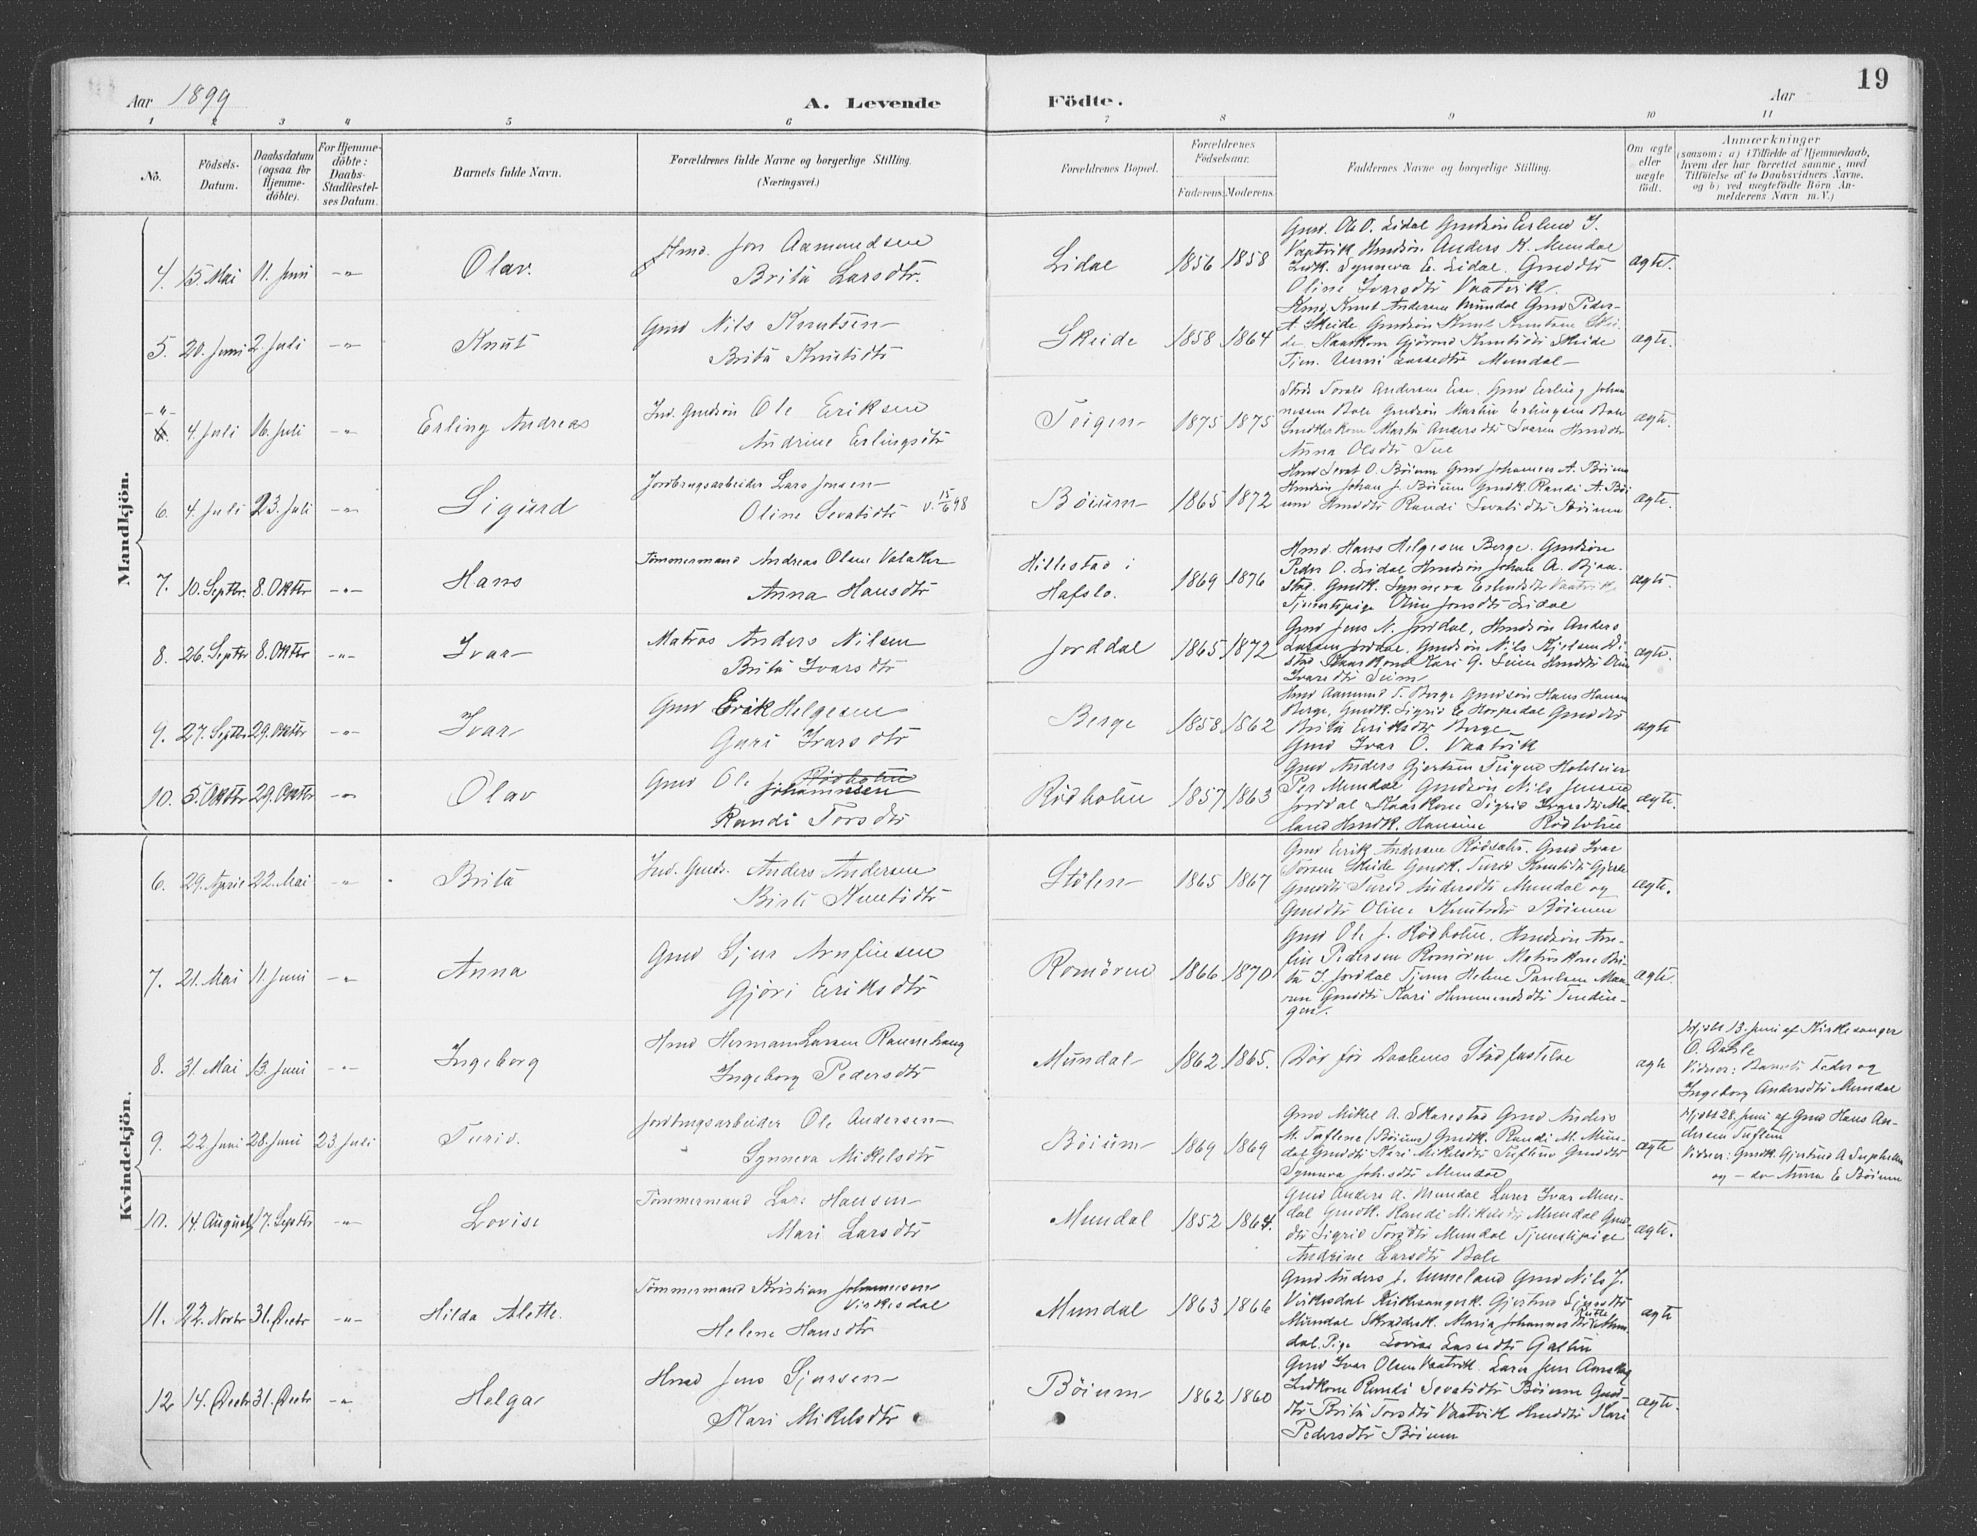 19
Aar 1899
A. Levende Födte.
Aar
1 2 3 4 5 6 7 8 9 10 11
No.
Födsels-Datum.
Daabsdatum (ogsaa for Hjemme-döbte).
For Hjemme-döbte: Daabs-Stadfæstel-ses Datum.
Barnets fulde Navn.
Forældrenes fulde Navne og borgerlige Stilling. (Næringsvei.)
Forældrenes Bopæl.
Forældrenes Födselsaar.
Faderens. Moderens.
Faddernes Navne og borgerlige Stilling.
Om ægte eller uægte födt.
Anmærkninger
(saasom: a) i Tilfælde af Hjemmedaab, hvem der har forrettet samme, med Tilföielse af to Daabsvidners Navne. og b) ved uægtefödte Börn An-melderens Navn m. V.)
Mandkjön.
4. 15. Mai 11. Juni -"- Olav.
Jon Aamundsen
Brita Larsdtr.
Lidal 1856 1858
Gmd. Ole O. Lidal Gmdsön Erlend J.
Vaatvik Hmdsön Anders K. Mundal
Synneva E. Lidal. Gmddtr
Oline Ivarsdtr Vaatvik.
ægte.
5. 20. Juni 2. Juli -"- Knut
Gmd Nils Knutsen
Brita Knutsdtr
Skeide 1858 1864
Knut Andersen Mundal Gmd Peder
A. Skeide Gmdsön Knut Knutsen Skei-
de. Kaarkone Gjörond Knutsdtr Skeide
Mundal
ægte.
-"- 4. Juli 16. Juli -"- Erling Andreas
Ind. Gmdsön Ole Eriksen
Andrine Erlingsdtr
Teigen 1875 1875
Andersen Gmd Erling Johan-
nessen Bale Gmdsön Martin Erlingsen Bale
Anna Olsdtr
ægte.
6. 4. Juli 23. Juli -"- Sigurd
Jordbrugsarbeider Lars Jensen
Oline Sevatsdtr v. 15/6 98
Böium 1865 1872
Hmd Sevat O. Böium Gmd Johannes A. Böium
Hmdsön Johan J. Böium Gmdk. Randi A. Böi-
um Hmddtr Randi Sevatsdtr Böium
ægte.
7. 10. Septbr. 8. Oktbr -"- Hans
Tömmermand Andreas Olsen Valaker
Anna Hansdtr
Hillestad i
Hafslo.
1869 1876
Hmd. Hans Helgesen Berge. Gmdsön
Peder O. Lidal Hmdsön Johan A. Bjaa-
stad. Gmdk. Synneva Erlendsdtr Vaatvik
Tjenestepige Oline Jonsdtr Lidal
ægte.
8. 26. Septbr 8. Oktbr -"- Ivar
Matros Anders Nilsen
Brita Ivarsdtr
Jorddal 1865 1872
Gmd Jens N. Jordal, Hmdsön Anders
Larsen Jordal. Gmdsön Nils
Kari G. Seim Hmddtr
Ivarsdtr Seim
ægte.
9. 27. Septbr 29. Oktbr -"- Ivar
Gmd Erik Helgesen
Guri Ivarsdtr
Berge 1858 1862
Hmd Aamund T. Berge Gmdsön Hans Hansen
Berge, Gmdk. Sigrid E Horpedal Gmddtr
Brita Eriksdtr Berge
Gmd Ivar O. Vaatvik
ægte
10. 5. Oktbr 29. Oktbr -"- Olav
Gmd Ole Rödholm
Johannessen
Randi Torsdtr
Rödholm 1857 1863
Gmd Anders Gjertsen Teigen
Per Mundal Gmdsön Nils Jensen
Jordal Kaarkone Sigrid Ivarsdtr Me-
land Hmdk. Hansine Rödholm
ægte.
Kvindekjön.
6. 29. April 22. Mai -"- Brita
Ind. Gmds. Anders Andersen
Knutsdtr
Stölen 1865 1867
Gmd Erik Andersen Gmd Ivar
Torsen Skeide Gmdk. Turid Knutsdtr
Gmddtr Turid Andersdtr Mundal og
Gmddtr Oline Knutsdtr Böium
ægte.
7. 21. Mai 11. Juni -"- Anna
Gmd Sjur Arnfinsen
Gjöri Eriksdtr
Romören 1866 1870
Gmd Ole J. Rödholm. Hmdsön Arn-
fin Pedersen Romören Matroskone Bri-
ta J. Jordal Helene Paulsen
Gmddtr Kari
ægte.
8. 31. Mai 13. Juni -"- Ingeborg
Hmd Herman Larsen
Ingeborg Pedersdtr
Mundal 1862 1865.
Död för Daabens Stadfæstelse
ægte
Hjdbt 13. Juni af Kirkesanger
O. Dahle
Vidner: Barnets Fader og
Ingeborg Andersdtr Mundal
9. 22 Juni 28. Juni 23. Juli Turid.
Jordbrugsarbeider Ole Andersen
Synneva Mikelsdtr
Böium 1869 1869
Gmd Mikel A. Skarestad Gmd Anders
M. (Böium) Gmdk. Randi M. Mun-
dal Gmddtr Kari Mikelsdtr Gmddtr
Synneva Johsdtr Mundal
ægte
Hjdbt 28. Juni af Gmd Hans An-
dersen
Vidner: Gmdk. Gjertrud A
og - do Anna E Böium
10. 14. August 17. Septbr -"- Lovise
Tömmermand Lars Hansen
Mari Larsdtr
Mundal 1852 1864.
Gmd Anders A. Mundal Lærer Ivar Mun-
dal Gmdk. Randi Mikelsdtr Mundal Gmd-
dtr Sigrid Torsdtr Mundal Tjenestepige
Andrine Larsdtr Bale
ægte.
11. 22. Novbr 31. Decbr -"- Hilda Alette.
Tömmermand Kristian Johannesen
Virkesdal
Helene Hansdtr
Mundal 1863 1866
Gmd Anders J. Gmd Nils J.
Virkesdal Kirkesangerk. Gjertrud Sjursdtr
Mundal Maria Johannesdtr Mun-
dal. Pige Lovise Larsdtr
ægte
12 14. Decbr 31. Decbr -"- Helga
Hmd Jens Sjursen
Kari Mikelsdtr
Böium 1862 1860
Gmd Ivar Olsen Vaatvik. Lærer Jens
Randi Sevatsdtr Böium Gmd-
dtr Brita Torsdtr Vaatvik Hmddtr Kari
Pedersdtr Böium
ægte.